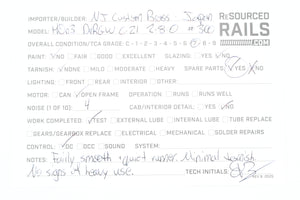 IMPORTER/BUILDER: NJ Custom Brass - Japan
RESOURCED RAILS .COM
MODEL: D&RGW C21 280
OVERALL CONDITION/TCA GRADE: C-1-2-3-4-5-6-7-8-9
PAINT: NO FAIR GOOD EXCELLENT GLAZING: YES NO
TARNISH: NONE MILD MODERATE HEAVY SPARE PARTS: YES NO
LIGHTING: FRONT REAR INTERIOR OTHER:
MOTOR: CAN OPEN FRAME OPERATION: RUNS RUNS WELL
NOISE (1 OF 10): 4 CAB/INTERIOR DETAIL: YES NO
WORK COMPLETED: TEST EXTERNAL LUBE INTERNAL LUBE TUBE REPLACE
GEARS/GEARBOX REPLACE ELECTRICAL MECHANICAL SOLDER REPAIRS
CONTROL: DC DCC SOUND SYSTEM:
NOTES: Fairly smooth + quiet runner. Minimal tarnish.
No signs of heavy use. TECH INITIALS: